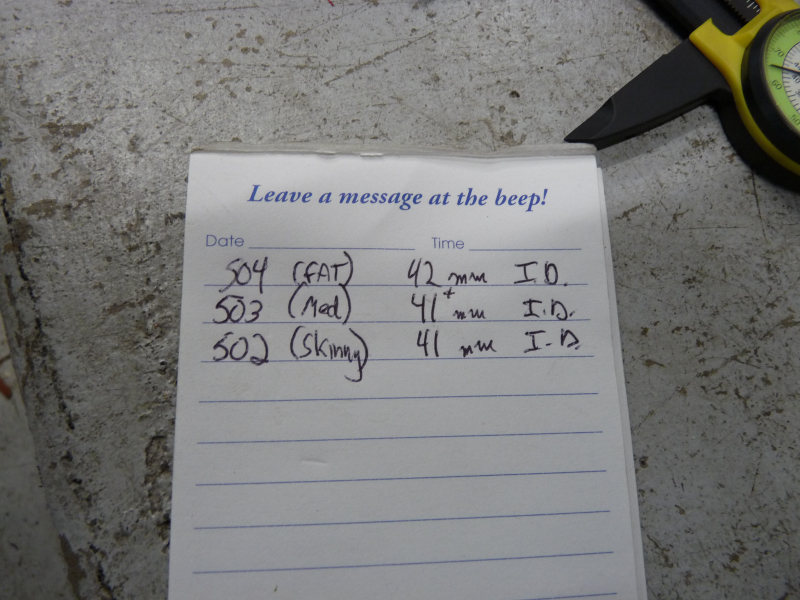 Leave a message at the beep!
Date Time
504 (FAT) 42 mm I.D.
503 (Med) 41+ mm I.D.
502 (Skinny) 41 mm I.D.